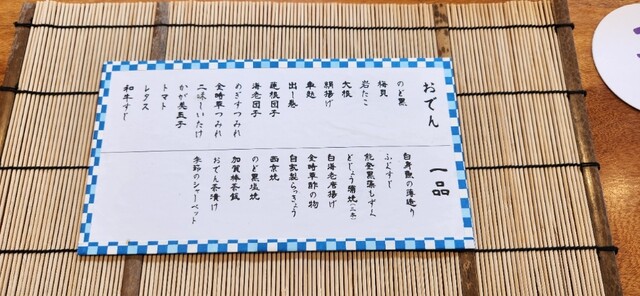 おでん
のど黒
梅貝
岩たこ
大根
絹揚げ
車麩
出し巻
蓮根団子
海老団子
めぎすつみれ
金時草つみれ
しいたけ
玉子
トマト
レタス
和牛すじ
一品
白身魚の薄造り
どじょう蒲焼(二本)
白海老唐揚げ
金時草酢の物
自家製らっきょう
西京焼
のど黒塩焼
加賀棒茶飯
おでん茶漬け
季節のシャーベット